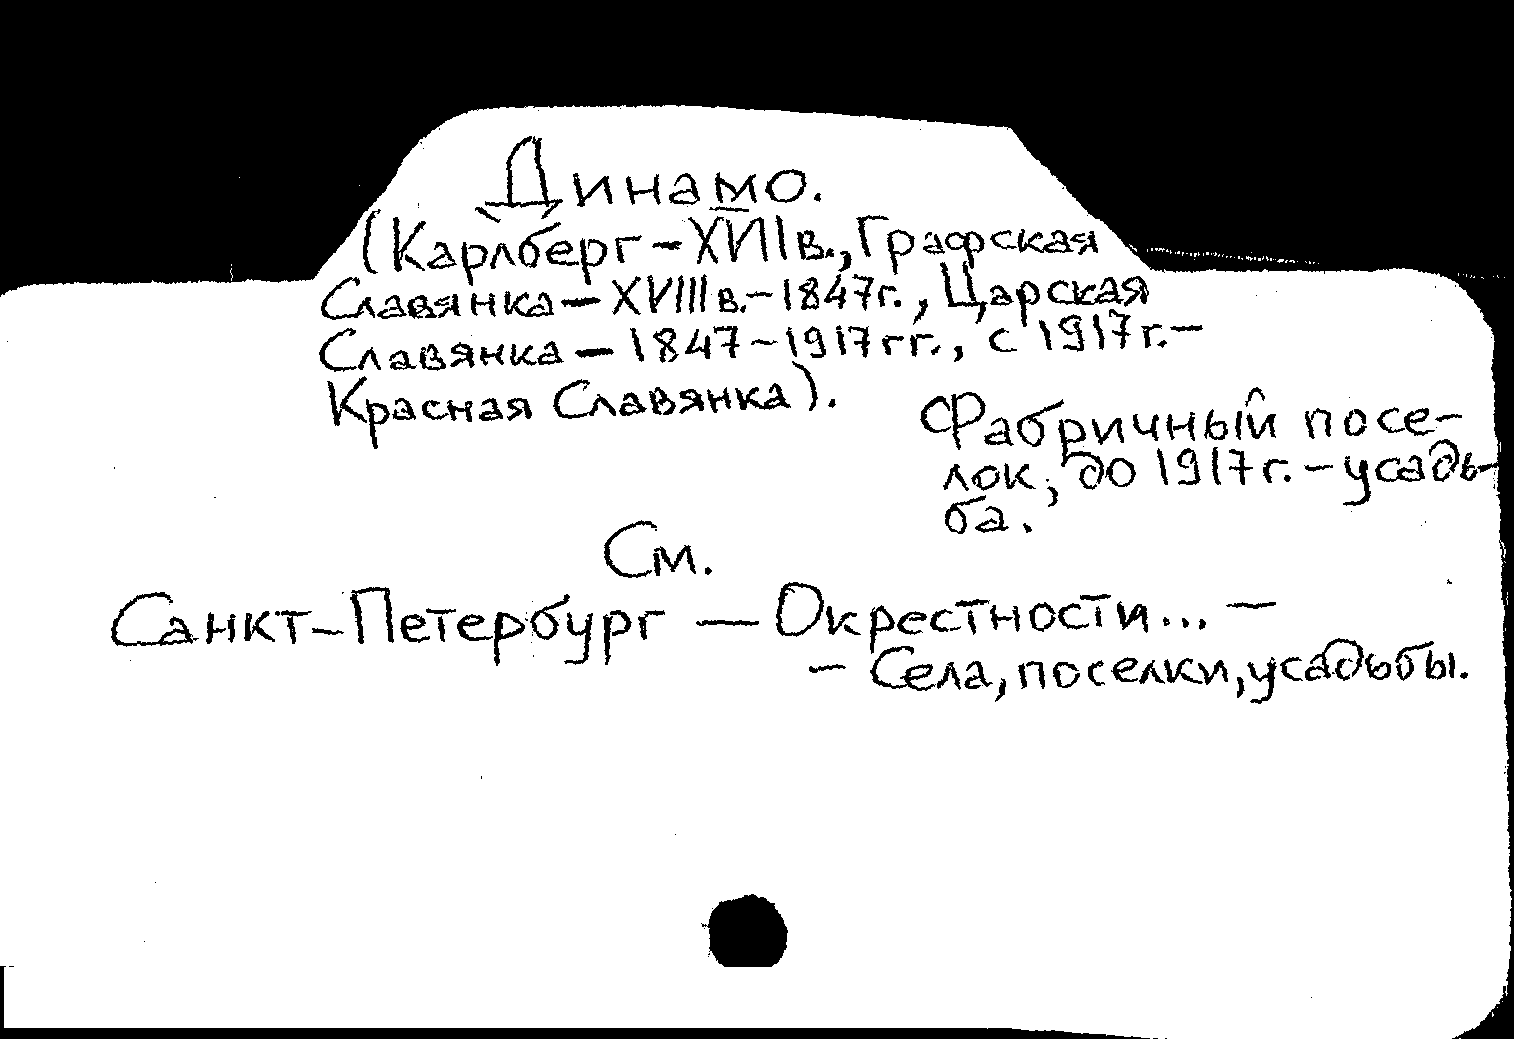 Динамо.
(Карлберг – XVII в., Графская
Славянка – XVIII в. – 1847 г., Царская
Славянка – 1847 – 1917 гг., с 1917 г. –
Красная Славянка).
Фабричный посе-
лок, до 1917 г. – усадь-
ба.
См.
Санкт-Петербург — Окрестности... —
– Села, поселки, усадьбы.